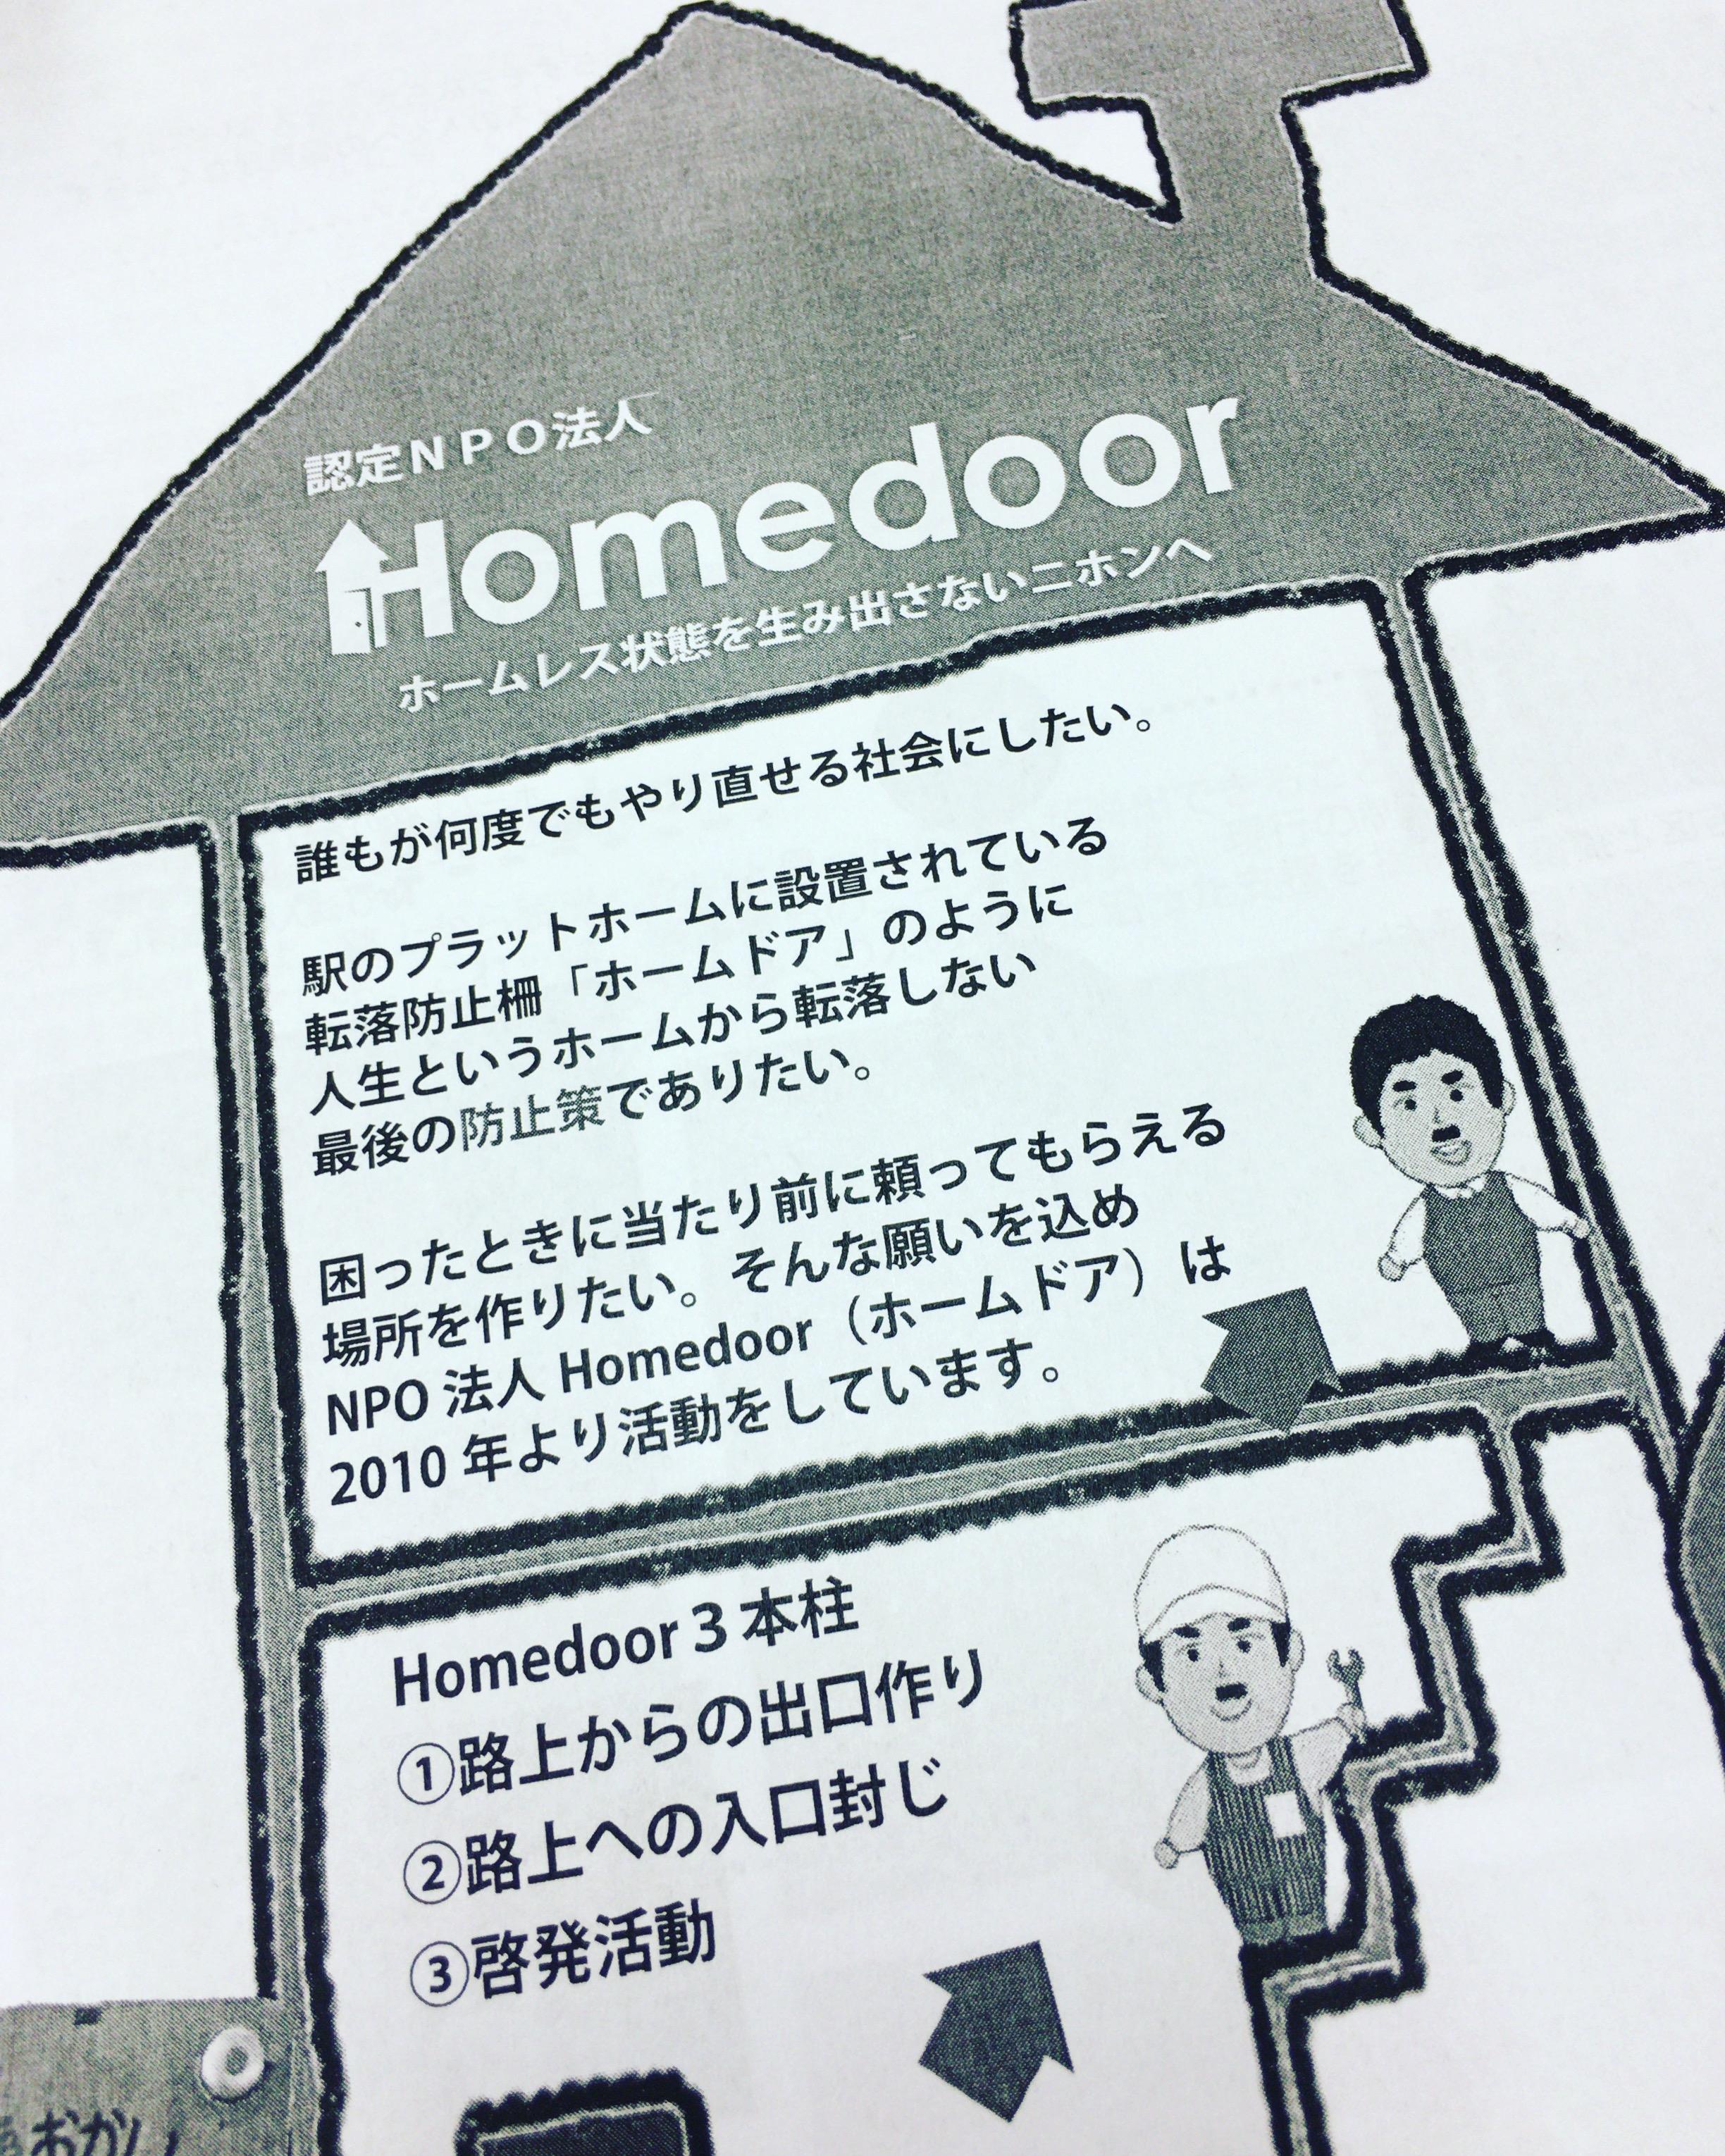 認定ＮＰＯ法人
Homedoor
ホームレス状態を生み出さないニホンへ
誰もが何度でもやり直せる社会にしたい。
駅のプラットホームに設置されている
転落防止柵「ホームドア」のように
人生というホームから転落しない
最後の防止策でありたい。
困ったときに当たり前に頼ってもらえる
場所を作りたい。そんな願いを込め
NPO 法人 Homedoor（ホームドア）は
2010 年より活動をしています。
Homedoor 3 本柱
①路上からの出口作り
②路上への入口封じ
③啓発活動